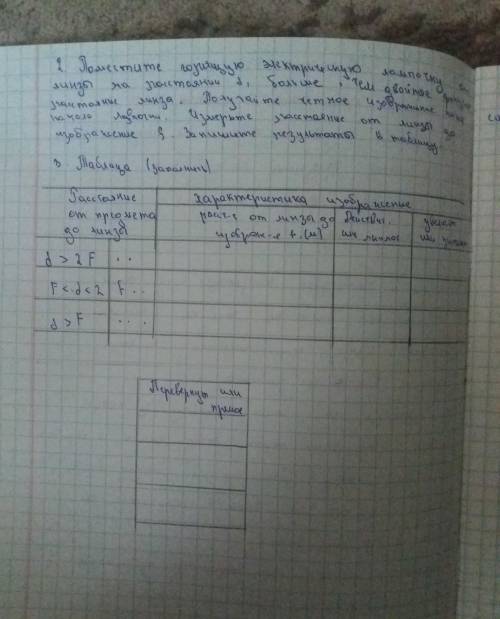 2. Поместите горящую электрическую лампочку от
линзы на расстоянии d, больше, чем двойное
расстояние линза. Получайте четное изображение
начало лампочки. Измерьте расстояние от линзы до
изображение f. Запишите результаты в таблицу.
3. Таблица (заполнить)
Расстояние
от предмета
до линзы
характеристика изображение
расст от линзы до
изображ-я f. (м)
Действит.
или мнимое
увелич
или
d > 2F ..
F < d < 2 F ..
d > F ...
Перевернут или
прямое